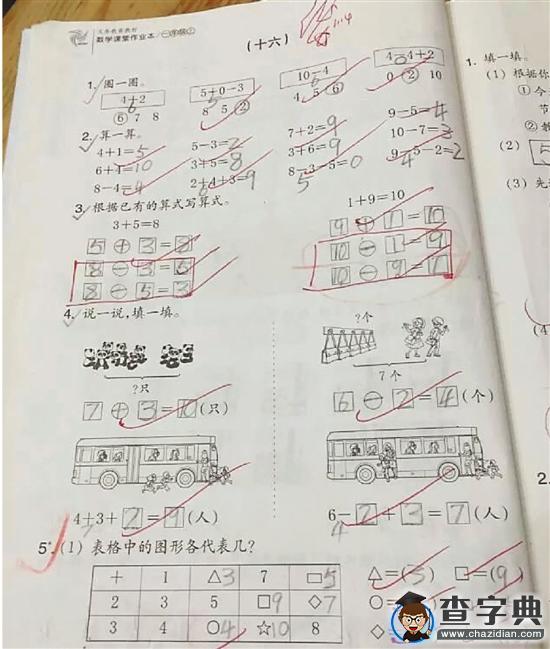 义务教育教材
数学课堂作业本/一年级上
(十六)
1. 圈一圈。
4+2
6
⑥ 7 8
5+0-3
5
8 5 ②
10-4
4 5 ⑥
4-4+2
0
0 ② 10
2. 算一算。
4+1=5 5-3=2 7+2=9 9-5=4
6+4=10 3+5=8 3+6=9 10-7=3
8-4=4 2+4+3=9 8-3-5=0 9-5-2=2
6 5 4
3. 根据已有的算式写算式。
3+5=8 1+9=10
5+3=8 9+1=10
8-3=5 10-1=9
8-5=3 10-9=1
4. 说一说，填一填。
?个
?只 7个
7+3=10(只) 6-2=4(个)
4+3+2=9(人) 6-2+3=7(人)
7 4
5*. (1) 表格中的图形各代表几?
+ 1 △3 7 □5
2 3 5 □9 ◇7
3 4 ○4 ☆10 8
△=(3) □=(9)
○=(
◇=
1. 填一填。
(1) 根据你
① 今
节
② 教
(2) 5
(3) 先
(4)
2.
查字典
www.chazidian.com